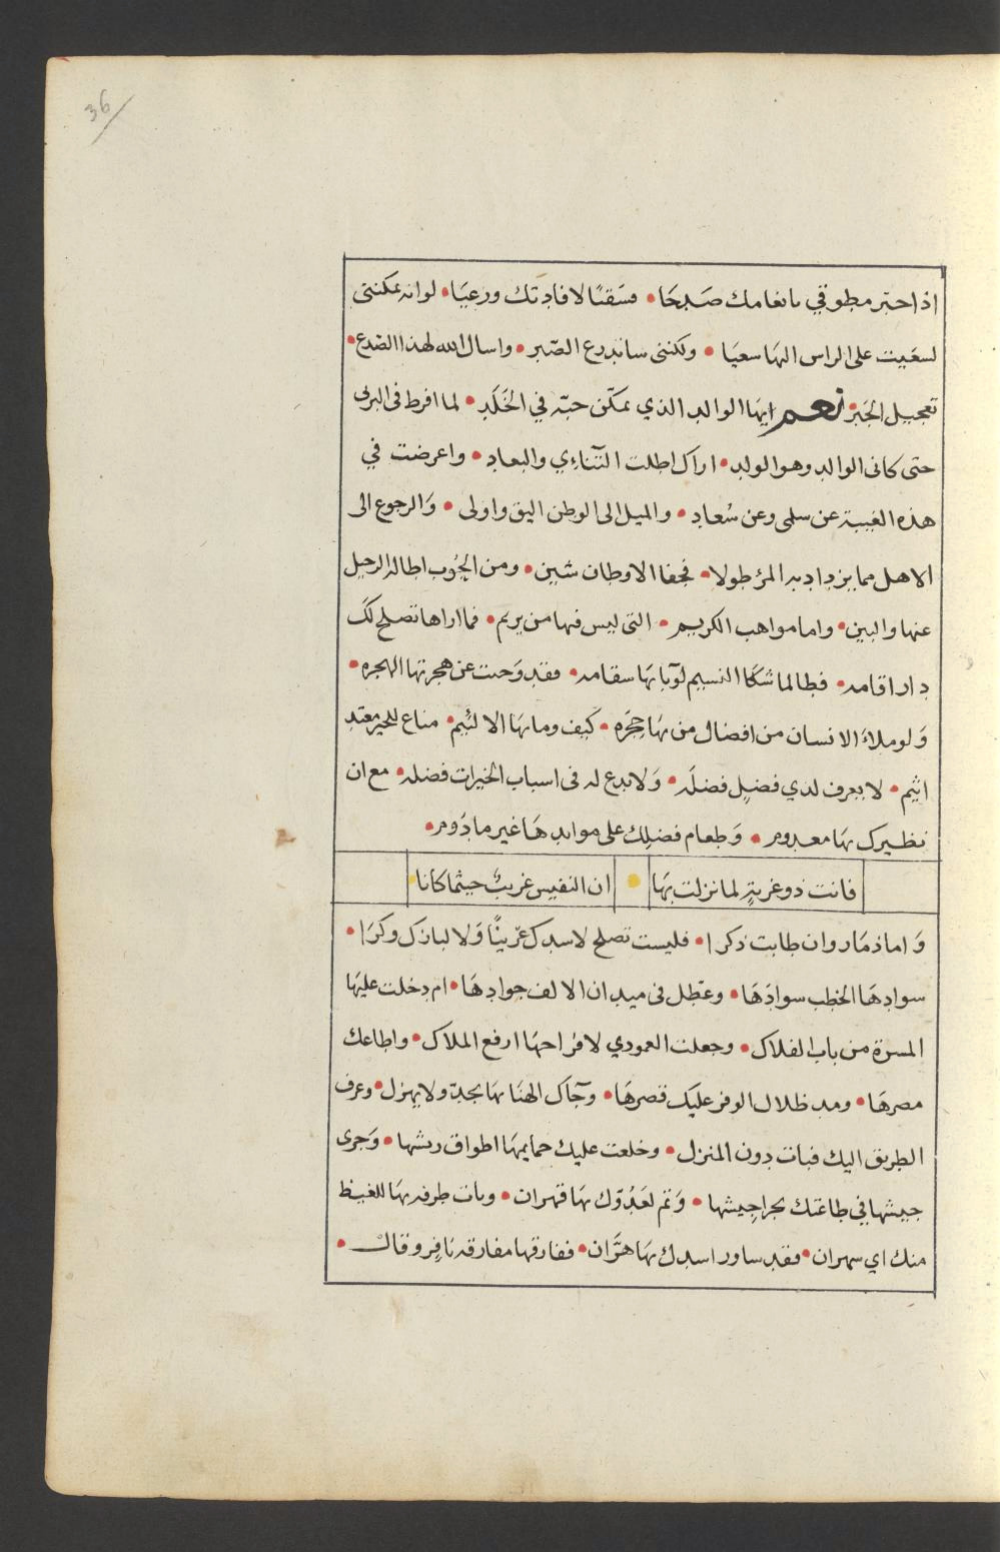 36
اذ احتر مطوقي بانعامك صَدحَا • وسَقيًا لافادتك ورعيَا • لوانه يمكننى
لسعَيت على الراس اليهَا سعيَا • ولكننى ساتدرع الصّبر • واسال الله لهذا الصّدع •
تعجيل الجَبر • نعم ايهَا الوالد الذي تمكّن حبّه في الخَلَدِ • لما افرط فى البر بى
حتى كانى الوالد وهو الولد • اراك اطلت التّنَاءِي والبعادِ • واعرضت في
هذه الغيبة عن سلمى وعن سُعادِ • والميل الى الوطن اليق واولى • وَالرجوع الى
الاهل مما يزداد به المرؤ طولا • فجفا الاوطان شين • ومن الحُوب اطالة الرحيل
عنها والبين • واما مواهب الكريم • التى ليس فيها من يريم • فما اراها تصلح لكَ
دار اقامه • فطالما شكَا النسيم لوَبابهَا سقامه • فقد وَجبت عن هجرتها الهجره •
وَلو ملاءَ الانسان من افضال من بهَا حِجَره • كيف وما بهَا الا لئيم • مناع للخير معتد
اثيم • لا يعرف لدي فضيلٍ فضلَه • وَلا يدع له فى اسباب الخيرات فضله • مع ان
نظيرك بهَا معدوم • وَطعام فضلِك على موايدهَا غير مادُوم •
فانت ذو غربةٍ لما نزلت بهَا • ان النفيس غريبٌ حيثما كانا
وَاما ذمَار وان طابت ذكرا • فليست تصلح لاسدك عَرينًا وَلا لبازك وكرَا •
سوادهَا الخطب سوادَهَا • وعَطل فى ميدان الالف جوادهَا • ام دخلت عليهَا
المسرة من باب الفلاك • وجعلت العمودي لافراحهَا ارفع الملاك • واطاعك
مصرهَا • ومد ظلال الوفر عليك قصرهَا • وجَآك الهنَا بهَا بجدّ ولا بهزل • وعرف
الطريق اليك فبات دون المنزل • وخلعت عليك حمايمهَا اطواق ريشها • وَجرى
جيشها في طاعتك بحرا جِيشها • وَتم لعَدُوّك بهَا قهران • وبات طرفه بهَا للغيظ
منك اي سهران • فقد ساور اسدك بهَا هرَّان • ففارقها مفارقه نافر وقال •